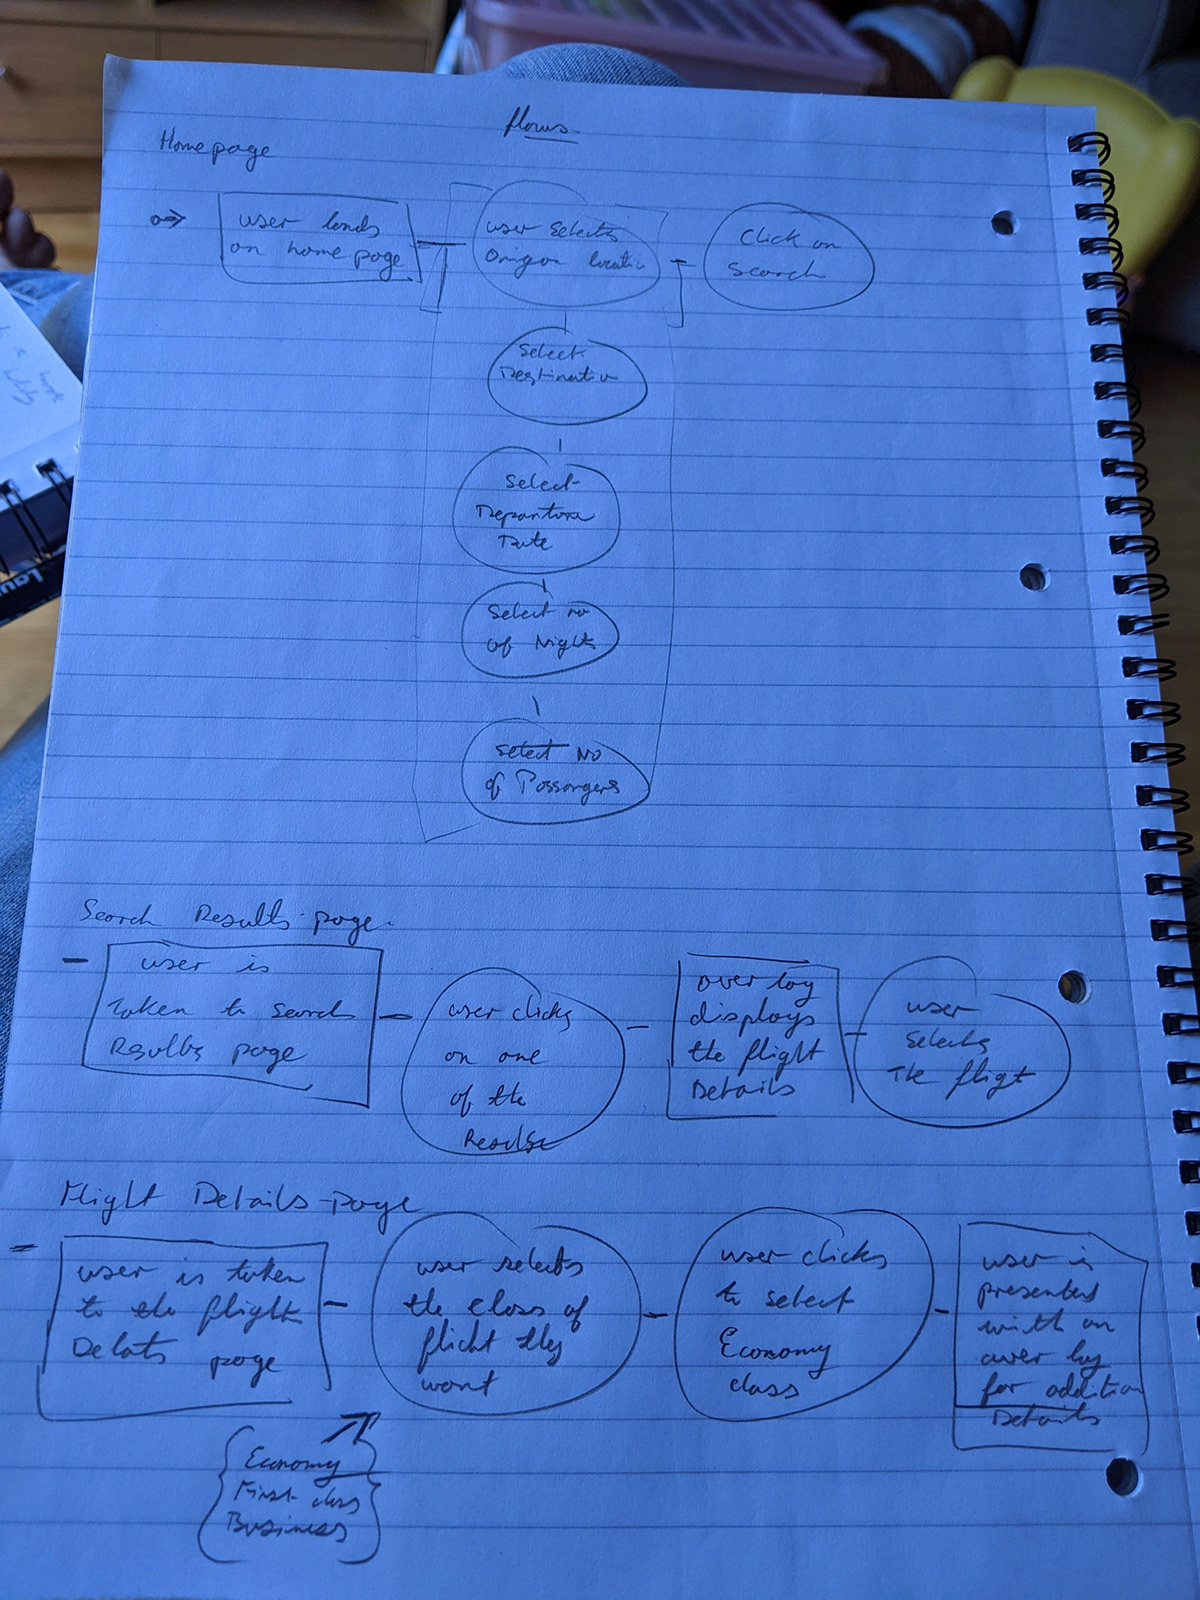 flows
Homepage
user lands
on home page
user selects
Origon locati
Click on
Search
Select
Destinatio
Select
Departure
Date
Select no
of Nights
Select No
of Passangers
Search Results page.
user is
taken to search
Results page
user clicks
on one
of the
Results
over lay
displays
the flight
Details
user
selects
The fligt
Flight Details page
user is taken
to the flight
page
user selects
the class of
flight they
want
user clicks
to select
Economy
class
user is
presented
with an
over lay
for addition
Details
Economy
First class
Business
Lav